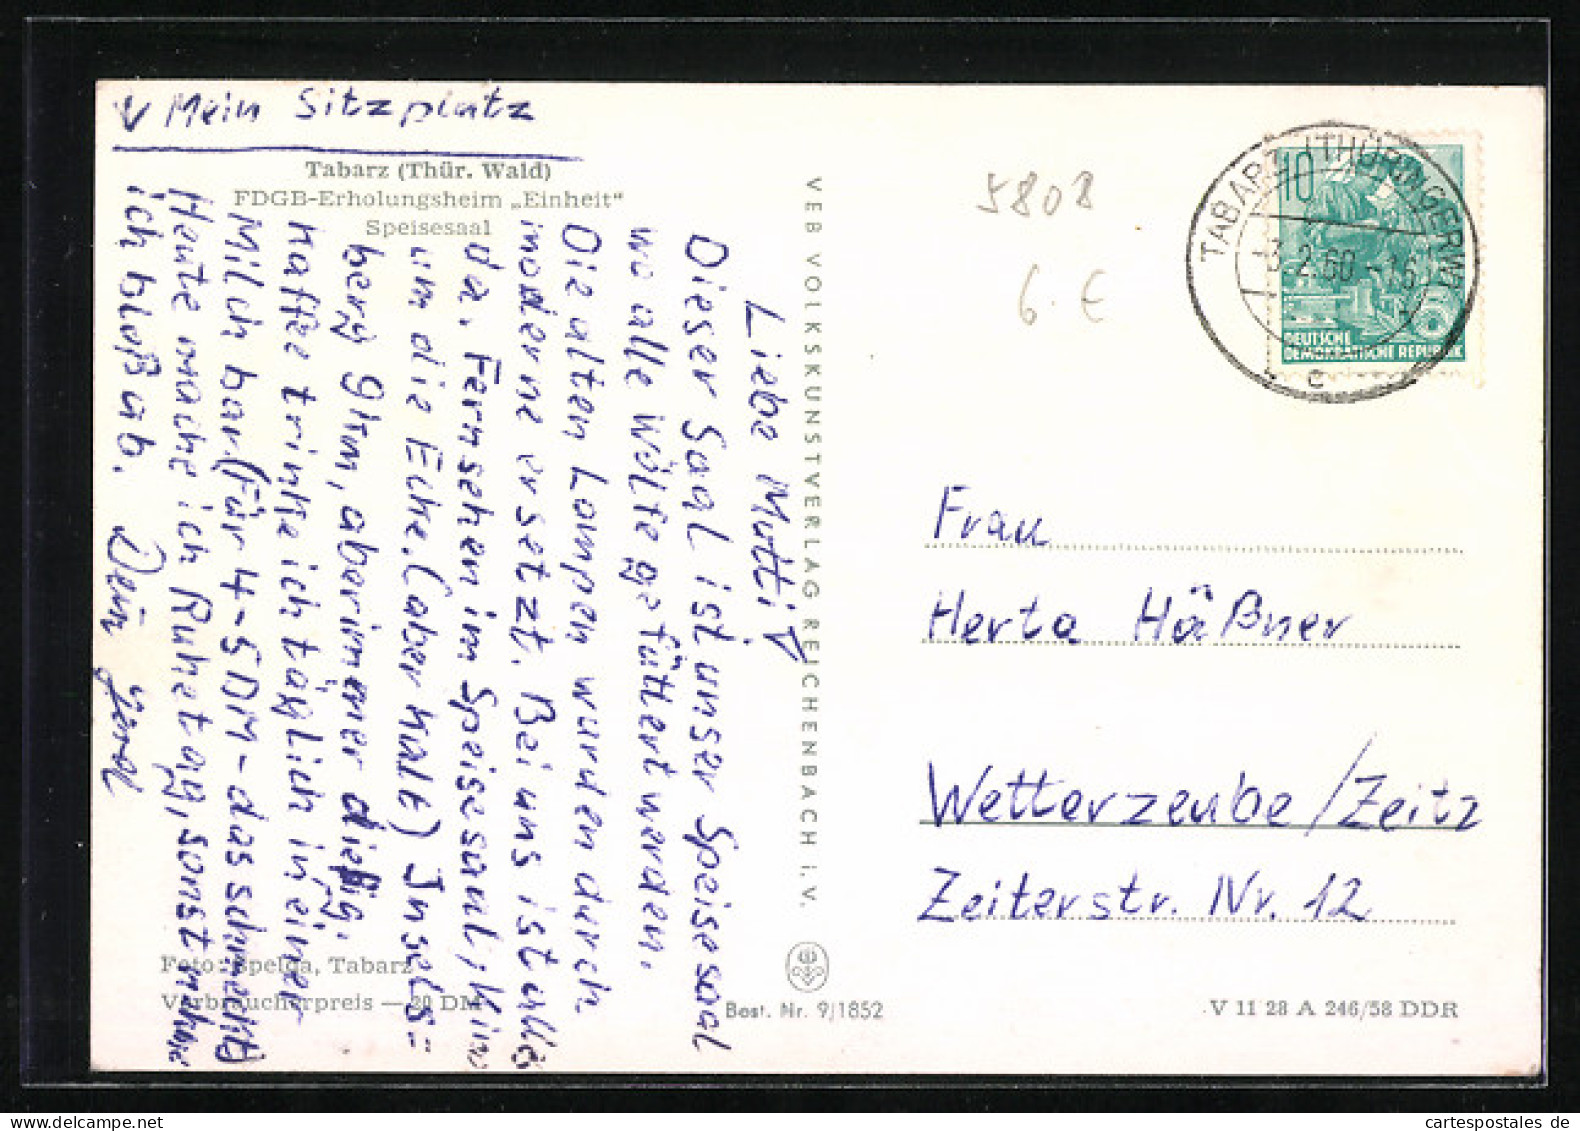 ↓ Mein Sitzplatz
Tabarz (Thür. Wald)
FDGB-Erholungsheim „Einheit“
Speisesaal
Liebe Mutti!
Dieser Saal ist unser Speisesaal
wo alle Wölfe gefüttert werden.
Die alten Lampen wurden durch
moderne ersetzt. Bei uns ist alles
da. Fernsehen im Speisesaal, Kino
um die Ecke. (aber kalt) Insels=
berg 9km, aber immer diesig.
Kaffee trinke ich täglich in einer
Milchbar (für 4-5DM - das schmeckt)
Heute mache ich Ruhetag, sonst nehme
ich bloß ab. Dein Gerd
Foto: Spelda, Tabarz
Verbraucherpreis — 20 DM
VEB VOLKSKUNSTVERLAG REICHENBACH I. V.
Best. Nr. 9/1852
V 11 28 A 246/58 DDR
5808
6.€
TABARZ (THÜRINGERW)
2.60 -16
c
10
DEUTSCHE
DEMOKRATISCHE REPUBLIK
Frau
Herta Häßner
Wetterzeube/Zeitz
Zeiterstr. Nr. 12
cartespostales de